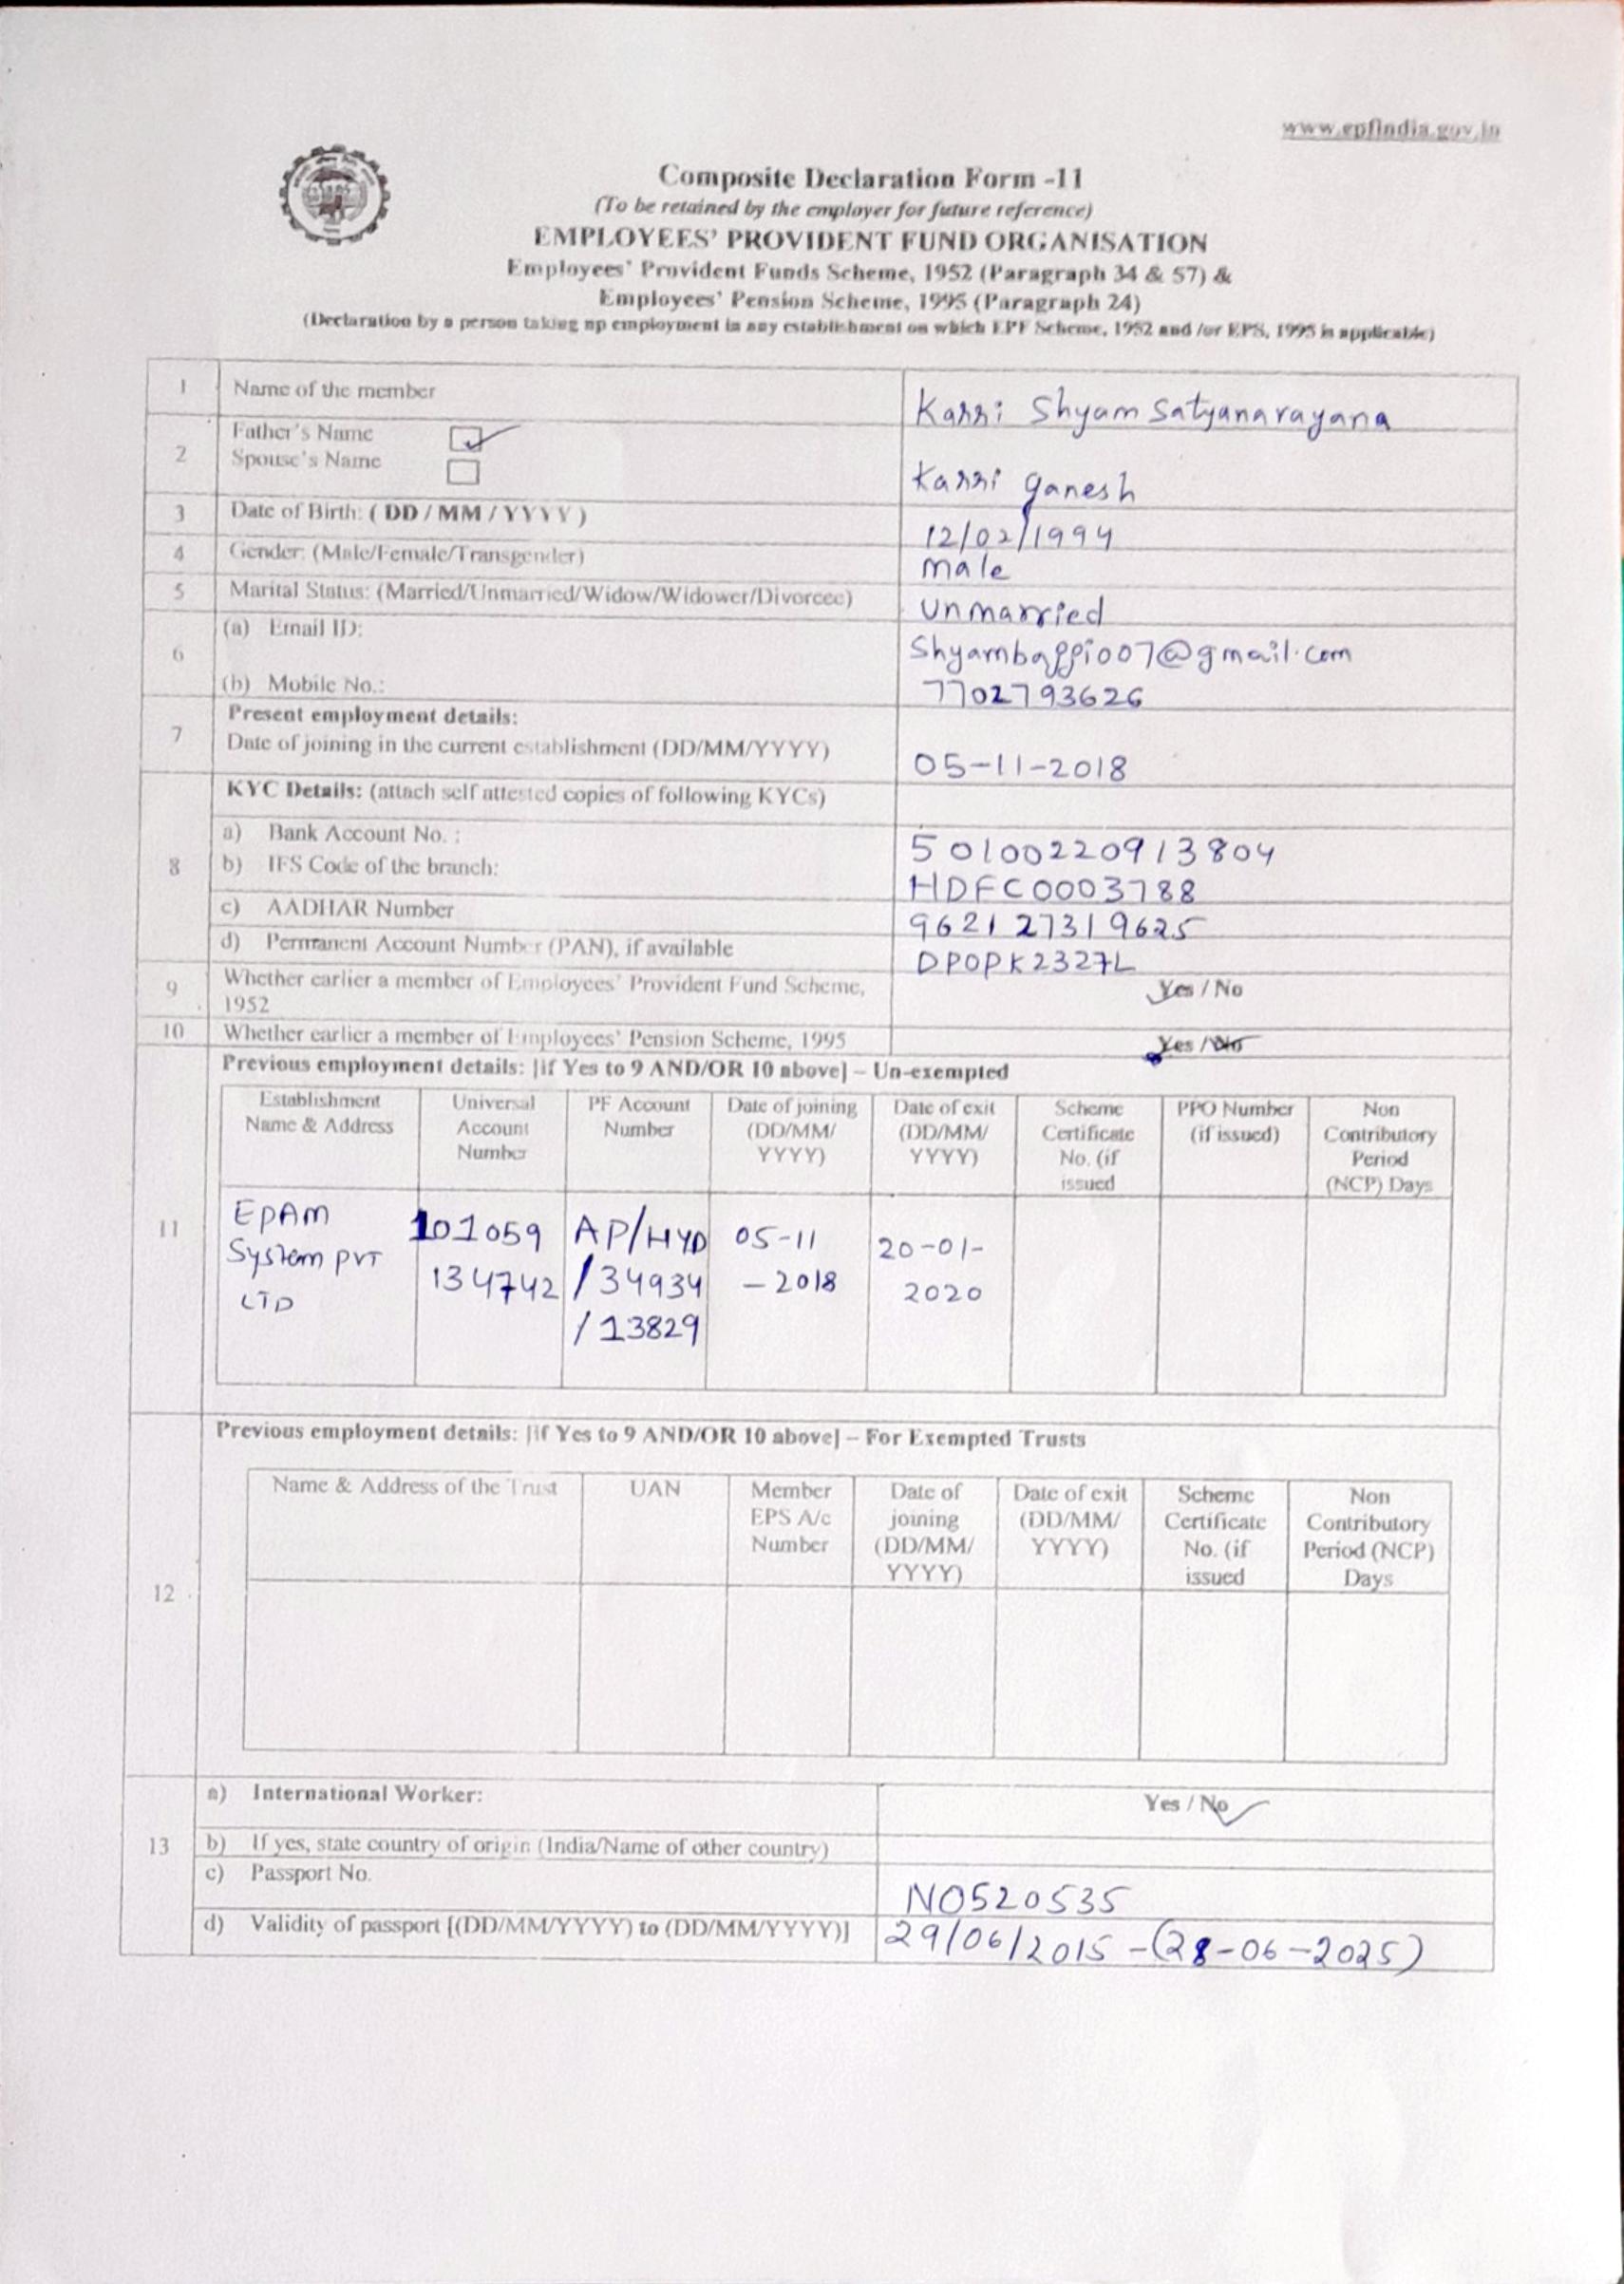 www.epfindia.gov.in
Composite Declaration Form -11
(To be retained by the employer for future reference)
EMPLOYEES' PROVIDENT FUND ORGANISATION
Employees' Provident Funds Scheme, 1952 (Paragraph 34 & 57) &
Employees' Pension Scheme, 1995 (Paragraph 24)
(Declaration by a person taking up employment in any establishment on which EPF Scheme, 1952 and /or EPS, 1995 is applicable)
1 Name of the member Karri Shyam Satyanarayana
2 Father's Name
Spouse's Name Karri ganesh
3 Date of Birth: ( DD / MM / YYYY ) 12/02/1994
4 Gender: (Male/Female/Transgender) male
5 Marital Status: (Married/Unmarried/Widow/Widower/Divorcee) unmarried
6 (a) Email ID:
(b) Mobile No.: 7702793626
7 Present employment details:
Date of joining in the current establishment (DD/MM/YYYY) 05-11-2018
KYC Details: (attach self attested copies of following KYCs)
8 a) Bank Account No. : 50100220913804
b) IFS Code of the branch: HDFC0003788
c) AADHAR Number 962127319625
d) Permanent Account Number (PAN), if available DPOPK2327L
9 Whether earlier a member of Employees' Provident Fund Scheme,
1952 Yes / No
10 Whether earlier a member of Employees' Pension Scheme, 1995 Yes / No
11 Previous employment details: [if Yes to 9 AND/OR 10 above] – Un-exempted
Establishment Universal PF Account Date of joining Date of exit Scheme PPO Number Non
Name & Address Account Number (DD/MM/ (DD/MM/ Certificate (if issued) Contributory
Number YYYY) YYYY) No. (if Period
issued (NCP) Days
EPAM 101059 AP/HYD 05-11 20-01-
System PVT 134742 /34934 -2018 2020
LTD /13829
12 Previous employment details: [if Yes to 9 AND/OR 10 above] – For Exempted Trusts
Name & Address of the Trust UAN Member Date of Date of exit Scheme Non
EPS A/c joining (DD/MM/ Certificate Contributory
Number (DD/MM/ YYYY) No. (if Period (NCP)
YYYY) issued Days
13 a) International Worker: Yes / No
b) If yes, state country of origin (India/Name of other country)
c) Passport No. N0520535
d) Validity of passport [(DD/MM/YYYY) to (DD/MM/YYYY)] 29/06/2015 -(28-06-2025)